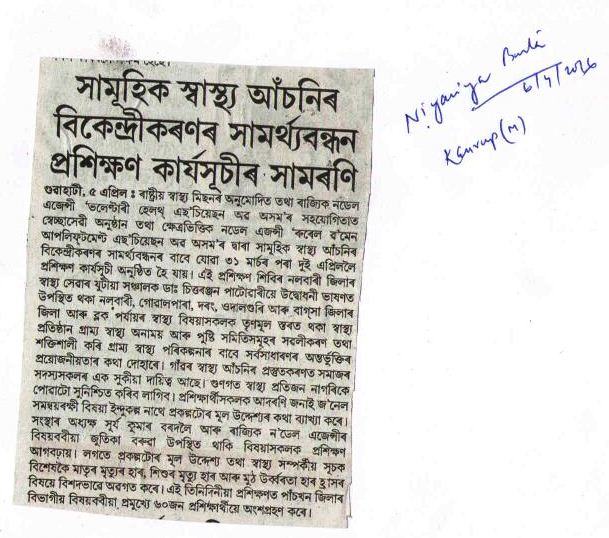 সামূহিক স্বাস্থ্য আঁচনিৰ
বিকেন্দ্ৰীকৰণৰ সামৰ্থ্যবন্ধন
প্ৰশিক্ষণ কাৰ্যসূচীৰ সামৰণি
গুৱাহাটী, ৫ এপ্ৰিল : ৰাষ্ট্ৰীয় স্বাস্থ্য মিছনৰ অনুমোদিত তথা ৰাজ্যিক নডেল
এজেন্সী 'ভলেণ্টাৰী হেলথ্ এছ'চিয়েছন অৱ অসম'ৰ সহযোগিতাত
স্বেচ্ছাসেৱী অনুষ্ঠান তথা ক্ষেত্ৰভিত্তিক নডেল এজন্সী 'ৰুৰেল ৱ'মেন
আপলিফ্টমেণ্ট এছ'চিয়েছন অৱ অসম'ৰ দ্বাৰা সামূহিক স্বাস্থ্য আঁচনিৰ
বিকেন্দ্ৰীকৰণৰ সামৰ্থ্যবন্ধনৰ বাবে যোৱা ৩১ মাৰ্চৰ পৰা দুই এপ্ৰিললৈ
প্ৰশিক্ষণ কাৰ্যসূচী অনুষ্ঠিত হৈ যায়। এই প্ৰশিক্ষণ শিবিৰ নলবাৰী জিলাৰ
স্বাস্থ্য সেৱাৰ যুটীয়া সঞ্চালক ডাঃ চিত্তৰঞ্জন পাটোৱাৰীয়ে উদ্বোধনী ভাষণত
উপস্থিত থকা নলবাৰী, গোৱালপাৰা, দৰং, ওদালগুৰি আৰু বাগ্সা জিলাৰ
জিলা আৰু ব্লক পৰ্যায়ৰ স্বাস্থ্য বিষয়াসকলক তৃণমূল স্তৰত থকা স্বাস্থ্য
প্ৰতিষ্ঠান গ্ৰাম্য স্বাস্থ্য অনাময় আৰু পুষ্টি সমিতিসমূহৰ সবলীকৰণ তথা
শক্তিশালী কৰি গ্ৰাম্য স্বাস্থ্য পৰিকল্পনাৰ বাবে সৰ্বসাধাৰণৰ অন্তৰ্ভুক্তিৰ
প্ৰয়োজনীয়তাৰ কথা দোহাৰে। গাঁৱৰ স্বাস্থ্য আঁচনিৰ প্ৰস্তুতকৰণত সমাজৰ
সদস্যসকলৰ এক সুকীয়া দায়িত্ব আছে। গুণগত স্বাস্থ্য প্ৰতিজন নাগৰিকে
পোৱাটো সুনিশ্চিত কৰিব লাগিব। প্ৰশিক্ষাৰ্থীসকলক আদৰণি জনাই জ'নেল
সমন্বয়ৰক্ষী বিষয়া ইন্দুকল্প নাথে প্ৰকল্পটোৰ মূল উদ্দেশ্যৰ কথা ব্যাখ্যা কৰে।
সংস্থাৰ অধ্যক্ষ সূৰ্য কুমাৰ বৰদলৈ আৰু ৰাজ্যিক ন'ডেল এজেন্সীৰ
বিষয়ববীয়া জূতিকা বৰুৱা উপস্থিত থাকি বিষয়াসকলক প্ৰশিক্ষণ
আগবঢ়ায়। লগতে প্ৰকল্পটোৰ মূল উদ্দেশ্য তথা স্বাস্থ্য সম্পৰ্কীয় সূচক
বিশেষকৈ মাতৃৰ মৃত্যুৰ হাৰ, শিশুৰ মৃত্যু হাৰ আৰু মুঠ উৰ্ব্বৰতা হাৰ হ্ৰাসৰ
বিষয়ে বিশদভাৱে অৱগত কৰে। এই তিনিদিনীয়া প্ৰশিক্ষণত পাঁচখন জিলাৰ
বিভাগীয় বিষয়ববীয়া প্ৰমুখ্যে ৬০জন প্ৰশিক্ষাৰ্থীয়ে অংশগ্ৰহণ কৰে।
Niyamiya Barta
6/4/2016
Kamrup (M)